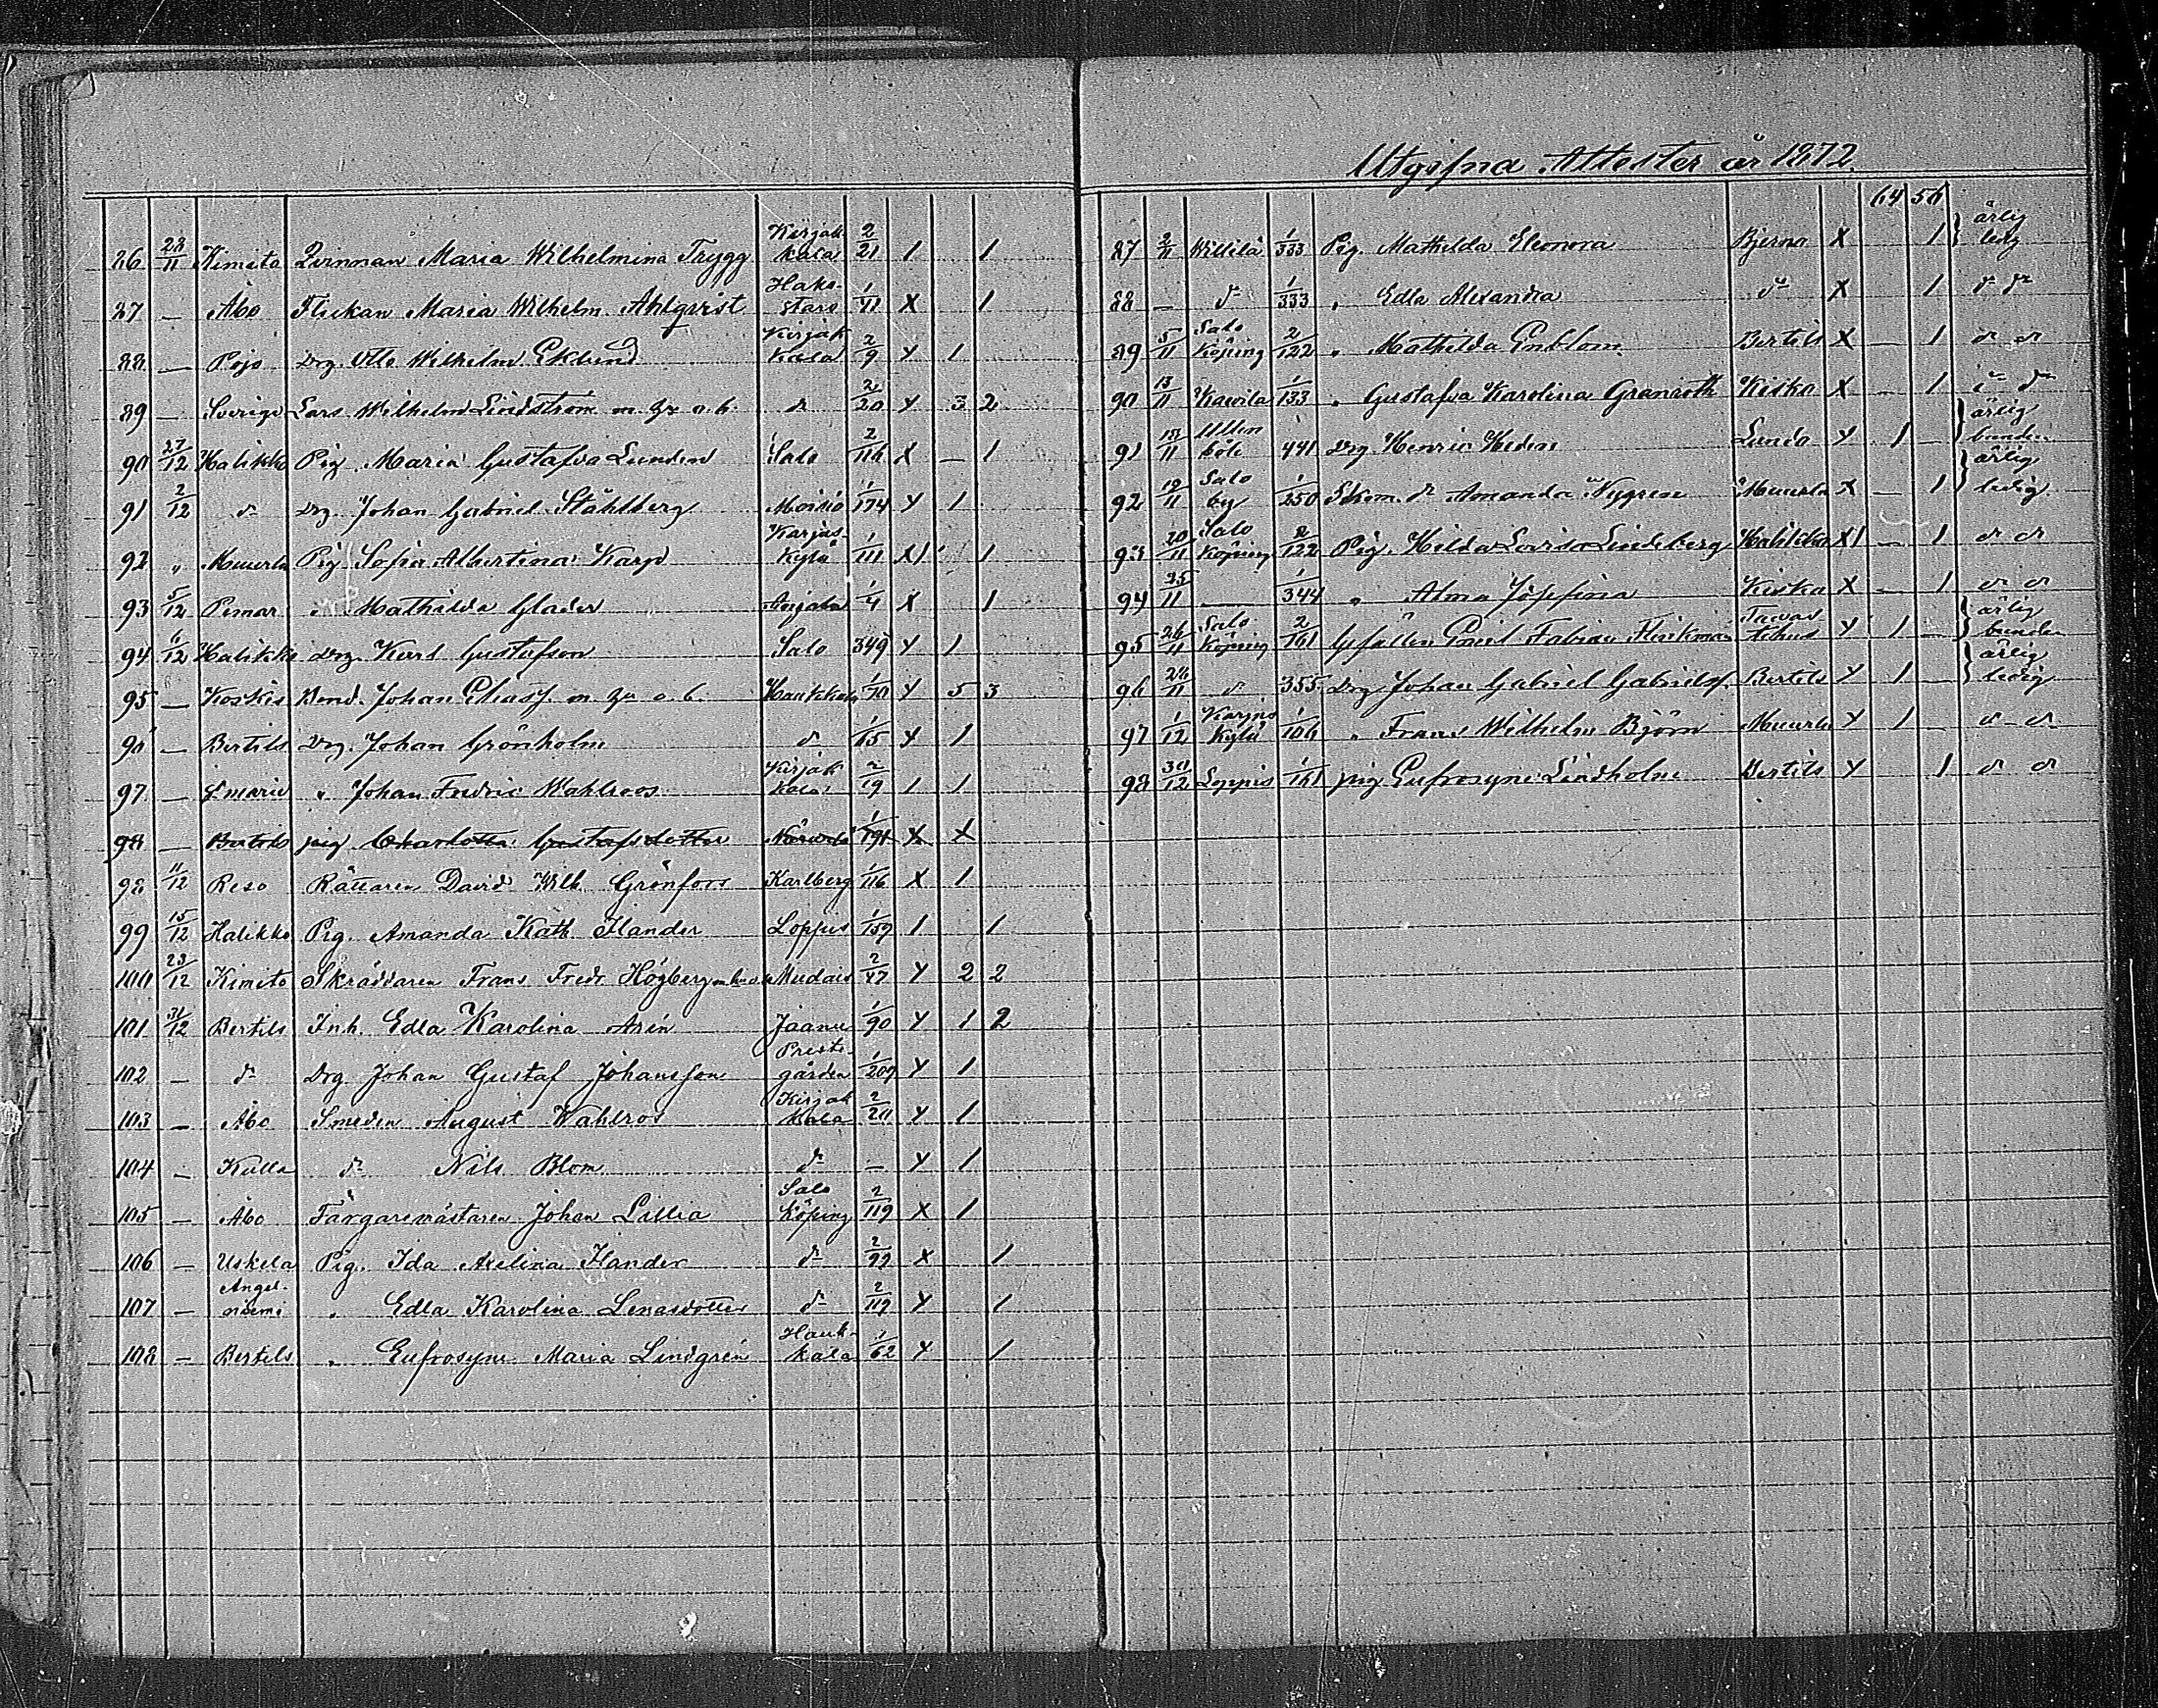 86 23/11 Kimito Qvinnan Maria Wilhelmina Trygg Kirjakkala 2/21 1 1
87 — Åbo Flickan Maria Wilhelm. Ahlqvist Hakostaro 1/41 X 1
88 — Pojo Drg. Otto Wilhelm Eklund Kirjakkala 2/9 Y 1
89 — Sverige Lars Wilhelm Lindström m. h. o. b. d:o 2/20 Y 3 2
90 27/12 Halikko Pig. Maria Gustafva Lundén Salo 2/116 X — 1
91 2/12 d:o Drg. Johan Gabriel Ståhlberg Moisio 1/174 Y 1
92 „ Muurla Pig. Sofia Albertina Karp Karjaskylä 1/111 X1 1
93 5/12 Pemar „ Mathilda Glader Anjala 1/4 X 1
94 6/12 Halikko Drg. Karl Gustafson Salo 349 Y 1
95 — Koskis Bond. Johan Eliasf. m. h. o. b. Haukkala 1/70 Y 5 3
96 — Bertils Drg. Johan Grönholm d:o 1/65 Y 1
97 — S:marie „ Johan Fredric Wahlroos Kirjakkala 2/19 1 1
98 — Bertils pig Charlotta Gustafsdotter 1/191 X X
98 11/12 Reso Rättaren David Wilh. Grönfors Karlberg 1/116 X 1
99 15/12 Halikko Pig. Amanda Kath. Flander Loppis 1/159 1 1
100 23/12 Kimito Skräddaren Frans Fredr. Högberg m. hustru Mudais 2/47 Y 2 2
101 31/12 Bertils Inh. Edla Karolina Arén Jaanu 1/90 Y 1 2
102 — d:o Drg. Johan Gustaf Johansson Prestgården 1/209 Y 1
103 — Åbo Smeden August Wahlros Kirjakkala 2/20 Y 1
104 — Kulla d:o Nils Blom d:o — Y 1
105 — Åbo Färgaremästaren Johan Lillia Salo köping 2/119 X 1
106 — Uskela Pig. Ida Axelina Flander d:o 2/99 X 1
107 — Angelniemi „ Edla Karolina Lenasdotter d:o 2/119 Y 1
108 — Bertils „ Eufrosyne Maria Lindgrén Haukkala 1/62 Y 1
Utgifna Attester år 1872.
64 56
87 2/11 Willilä 1/333 Pig. Mathilda Eleonora Bjerno X 1 ärlig ledig
88 — d:o 1/333 „ Edla Alexandra d:o X 1 d:o d:o
89 5/11 Salo Köping 2/122 „ Mathilda Enblom Bertils X — 1 d:o d:o
90 13/11 Kaivila 1/133 „ Gustafva Karolina Granroth Kisko X — 1 d:o d:o
91 18/11 441 Drg. Henric Hedén Lundo Y 1 — ärlig bunden
92 19/11 Salo by 1/250 Skom. d:r Amanda Nygren Muurla X — 1 ärlig ledig
93 20/11 Salo Köping 2/122 Pig. Hilda Lovisa Lindeberg Halikko X1 — 1 d:o d:o
94 25/11 — 1/344 „ Alma Joppina Kisko X — 1 d:o d:o
95 26/11 Salo Köping 2/161 Gesällen Emil Fabian Flinkman Tavastehus Y 1 — ärlig bunden
96 26/11 d:o 355 Drg. Johan Gabriel Gabrielsf. Bertils Y 1 — ärlig ledig
97 1/12 Karjaskylä 1/106 „ Frans Wilhelm Björn Muurla Y 1 d:o d:o
98 30/12 Loppis 1/161 pig Eufrosyne Lindholm Bertils Y 1 d:o d:o